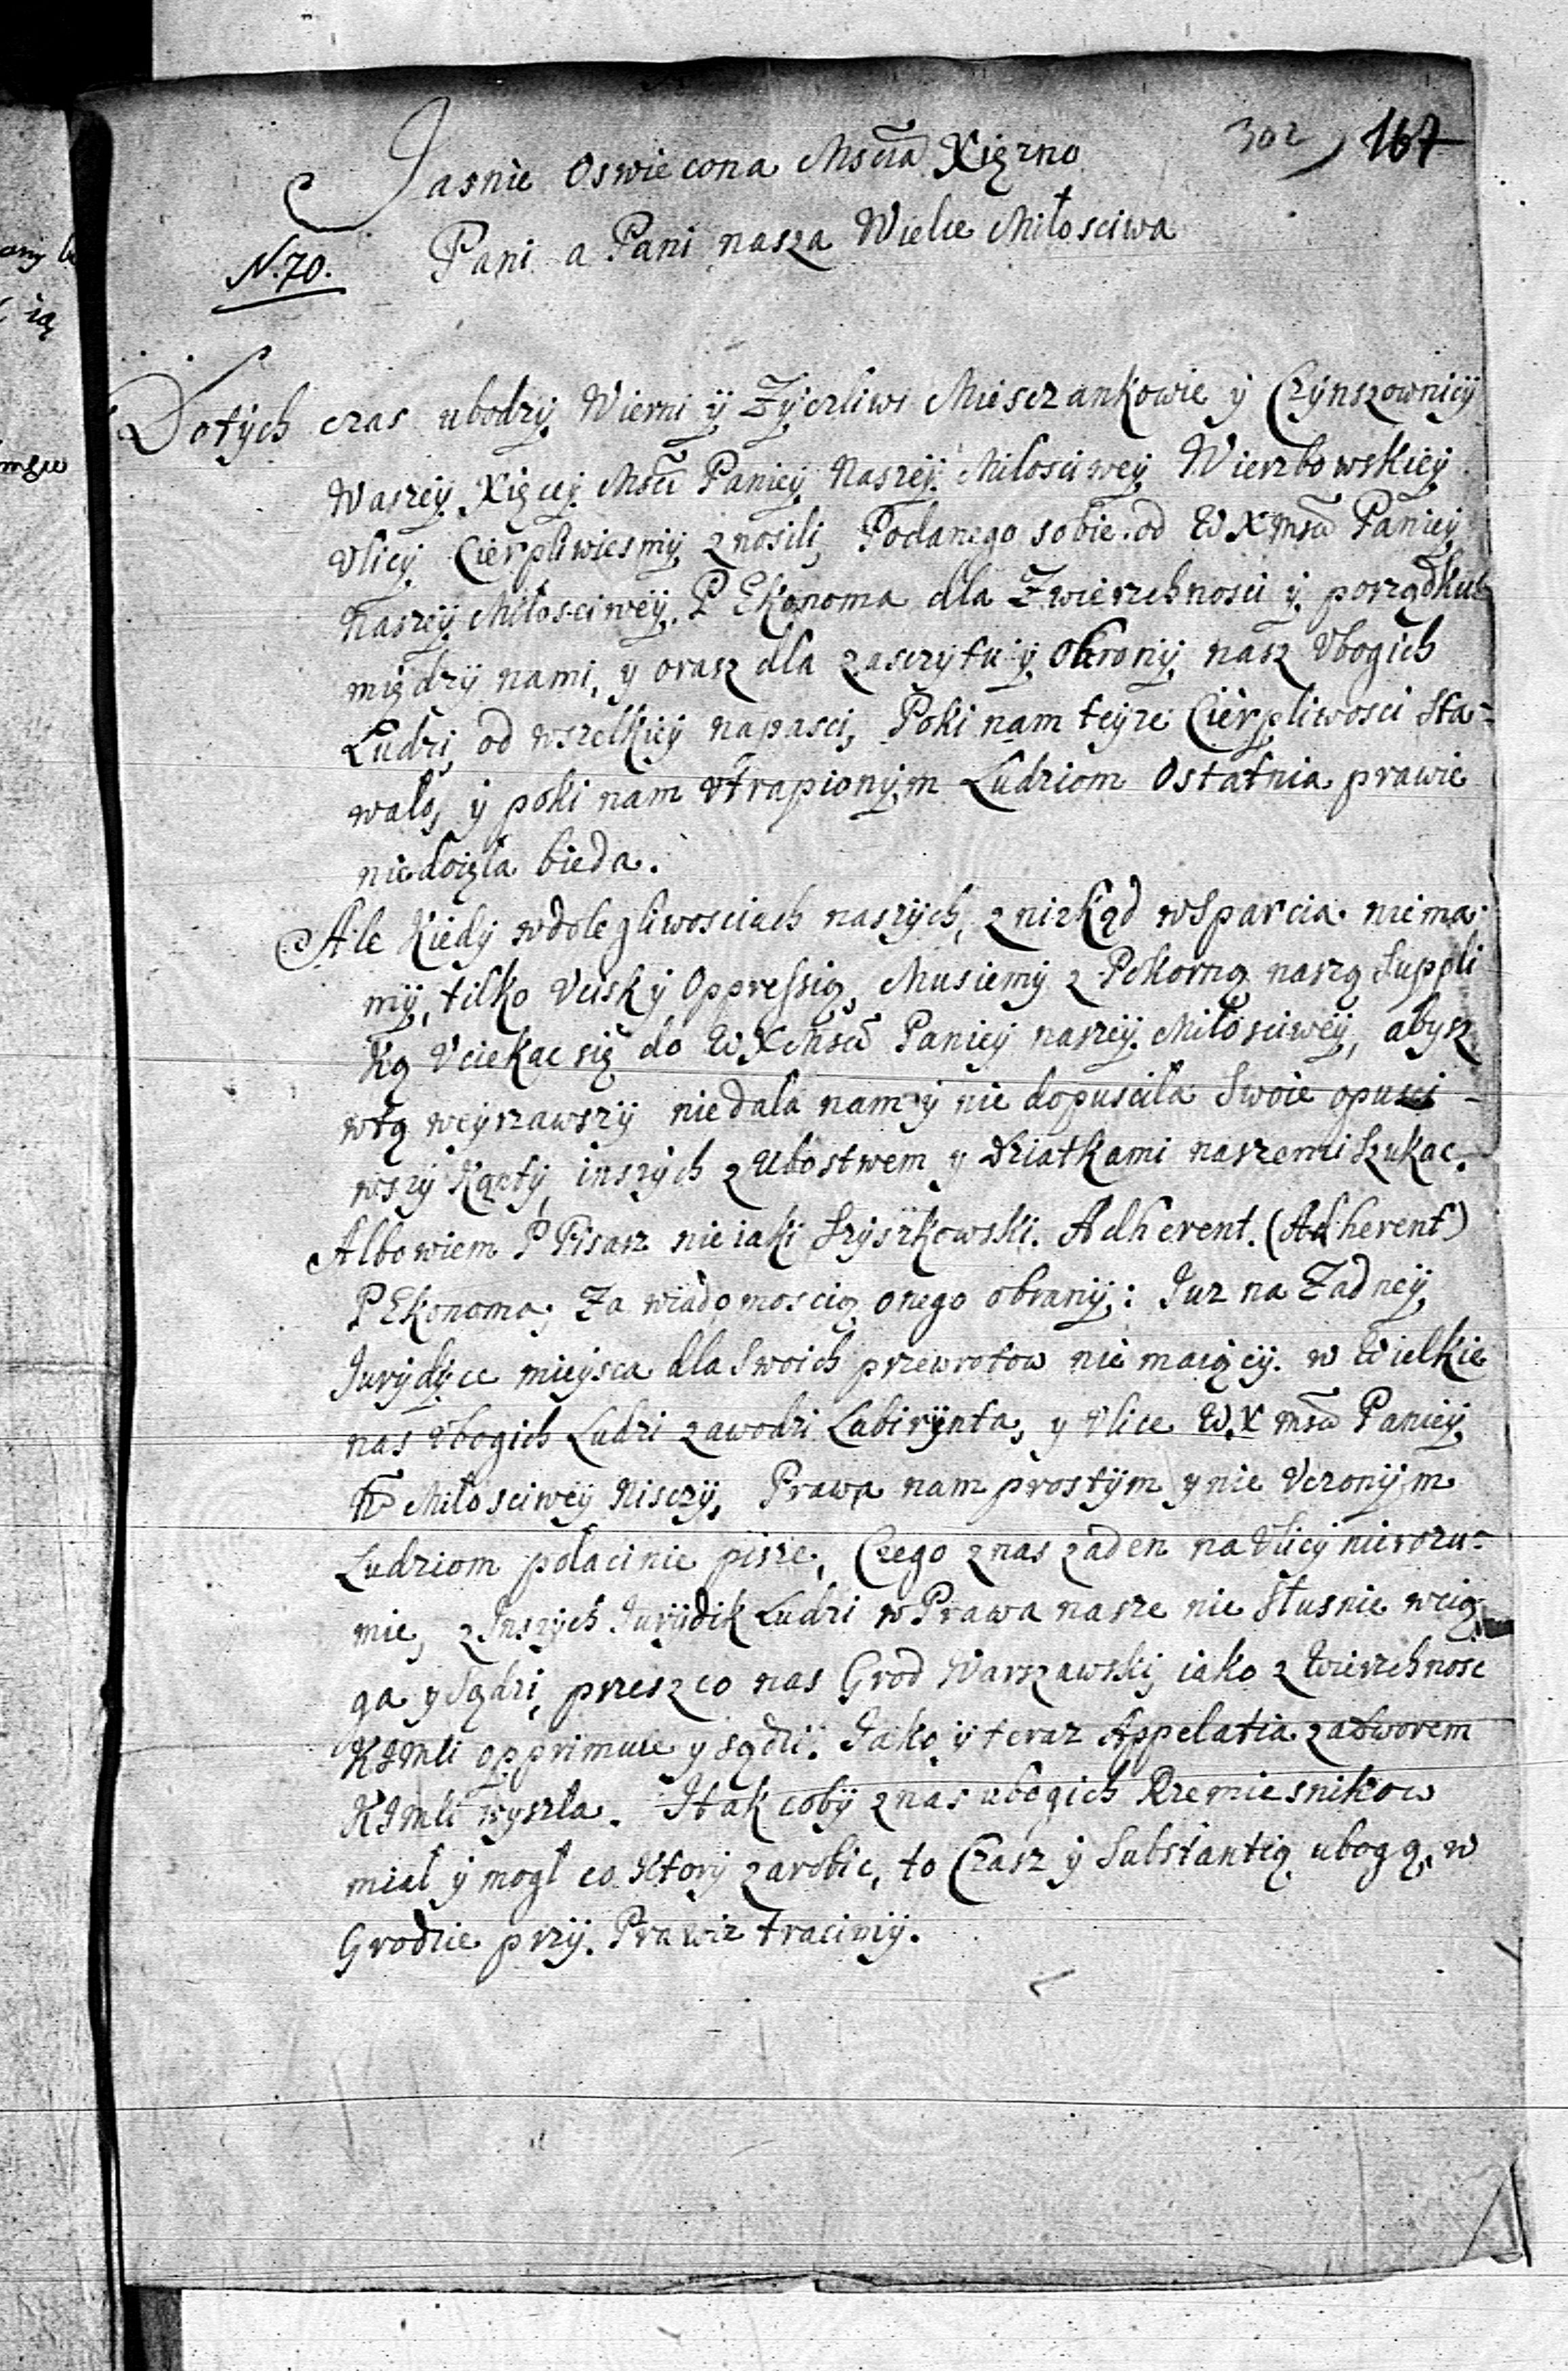 302 167
Jasnie Oswiecona Mscia Xięzno
N. 70.
Pani a Pani nasza Wielce Miłosciwa
Dotych czas ubodzy Wierni ÿ Zÿczliwi Miesczankowie ÿ Czÿnszownicÿ
Waszeÿ Xięceÿ Mści Panieÿ Naszeÿ Milosciweÿ Wierzbowskieÿ
Vlicÿ Cierpliwiesmÿ znosili, Podanego sobie od W X Mści Panieÿ
Naszeÿ Miłosciweÿ P Ekonoma dla Zwierzchnosci ÿ porządku
między nami, y orasz dla zasczytu ÿ Obronÿ nasz Vbogich
Ludzi, od wszelkieÿ napasci, Poki nam teÿze Cierpliwosci sta-
walo, ÿ poki nam Vtrapionÿm Ludziom Ostatnia prawie
niedoięla bieda.
Ale Kiedÿ wdolegliwosciach naszÿch, znizkąd wsparcia niema-
mÿ, tilko Vcisk ÿ Oppressią, Musiemÿ z Pokorną naszą Suppli
ką Vciekac się do W X Mści Panieÿ naszeÿ Miłosciweÿ, abysz
wtą weÿrzawszÿ niedala nam ÿ nie dopuscila Swoie opusci-
wszÿ Kąntÿ, inszÿch z Ubostwem y Dziatkami naszemi szukac.
Albowiem P Pisarz nieiaki Szÿszkowski. Adherent. (Adherent)
P Ekonoma; Za wiadomoscią onego obranÿ: Juz na Zadneÿ
Jurÿdÿce mieÿsca dla Swoich przewrotow nie maiącÿ. w Wielkie
nas Vbogich Ludzi zawodzi Labirÿnta, y Vlice W. X Mści Panieÿ
N Milosciweÿ Nisczÿ, Prawa nam prostÿm y nie Vczonÿm
Ludziom polacinie pisze, Czego znas zaden na Vlicÿ nierozu-
mie, z Inszÿch Jurÿdik Ludzi w Prawa nasze nie słusnie wcią
ga y Sądzi, przeszco nas Grod Warszawski, iako zwierzchnosc
KJMLi opprimuie y sądzi. Jako ÿ teraz Appelatia zadworem
KJMLi wyszla. Itak cobÿ znas ubogich Rzemiesnikow
mial ÿ mogl co Ktorÿ zarobic, to Czasz ÿ Substantią ubogą, w
Grodzie przÿ Prawie tracimÿ.